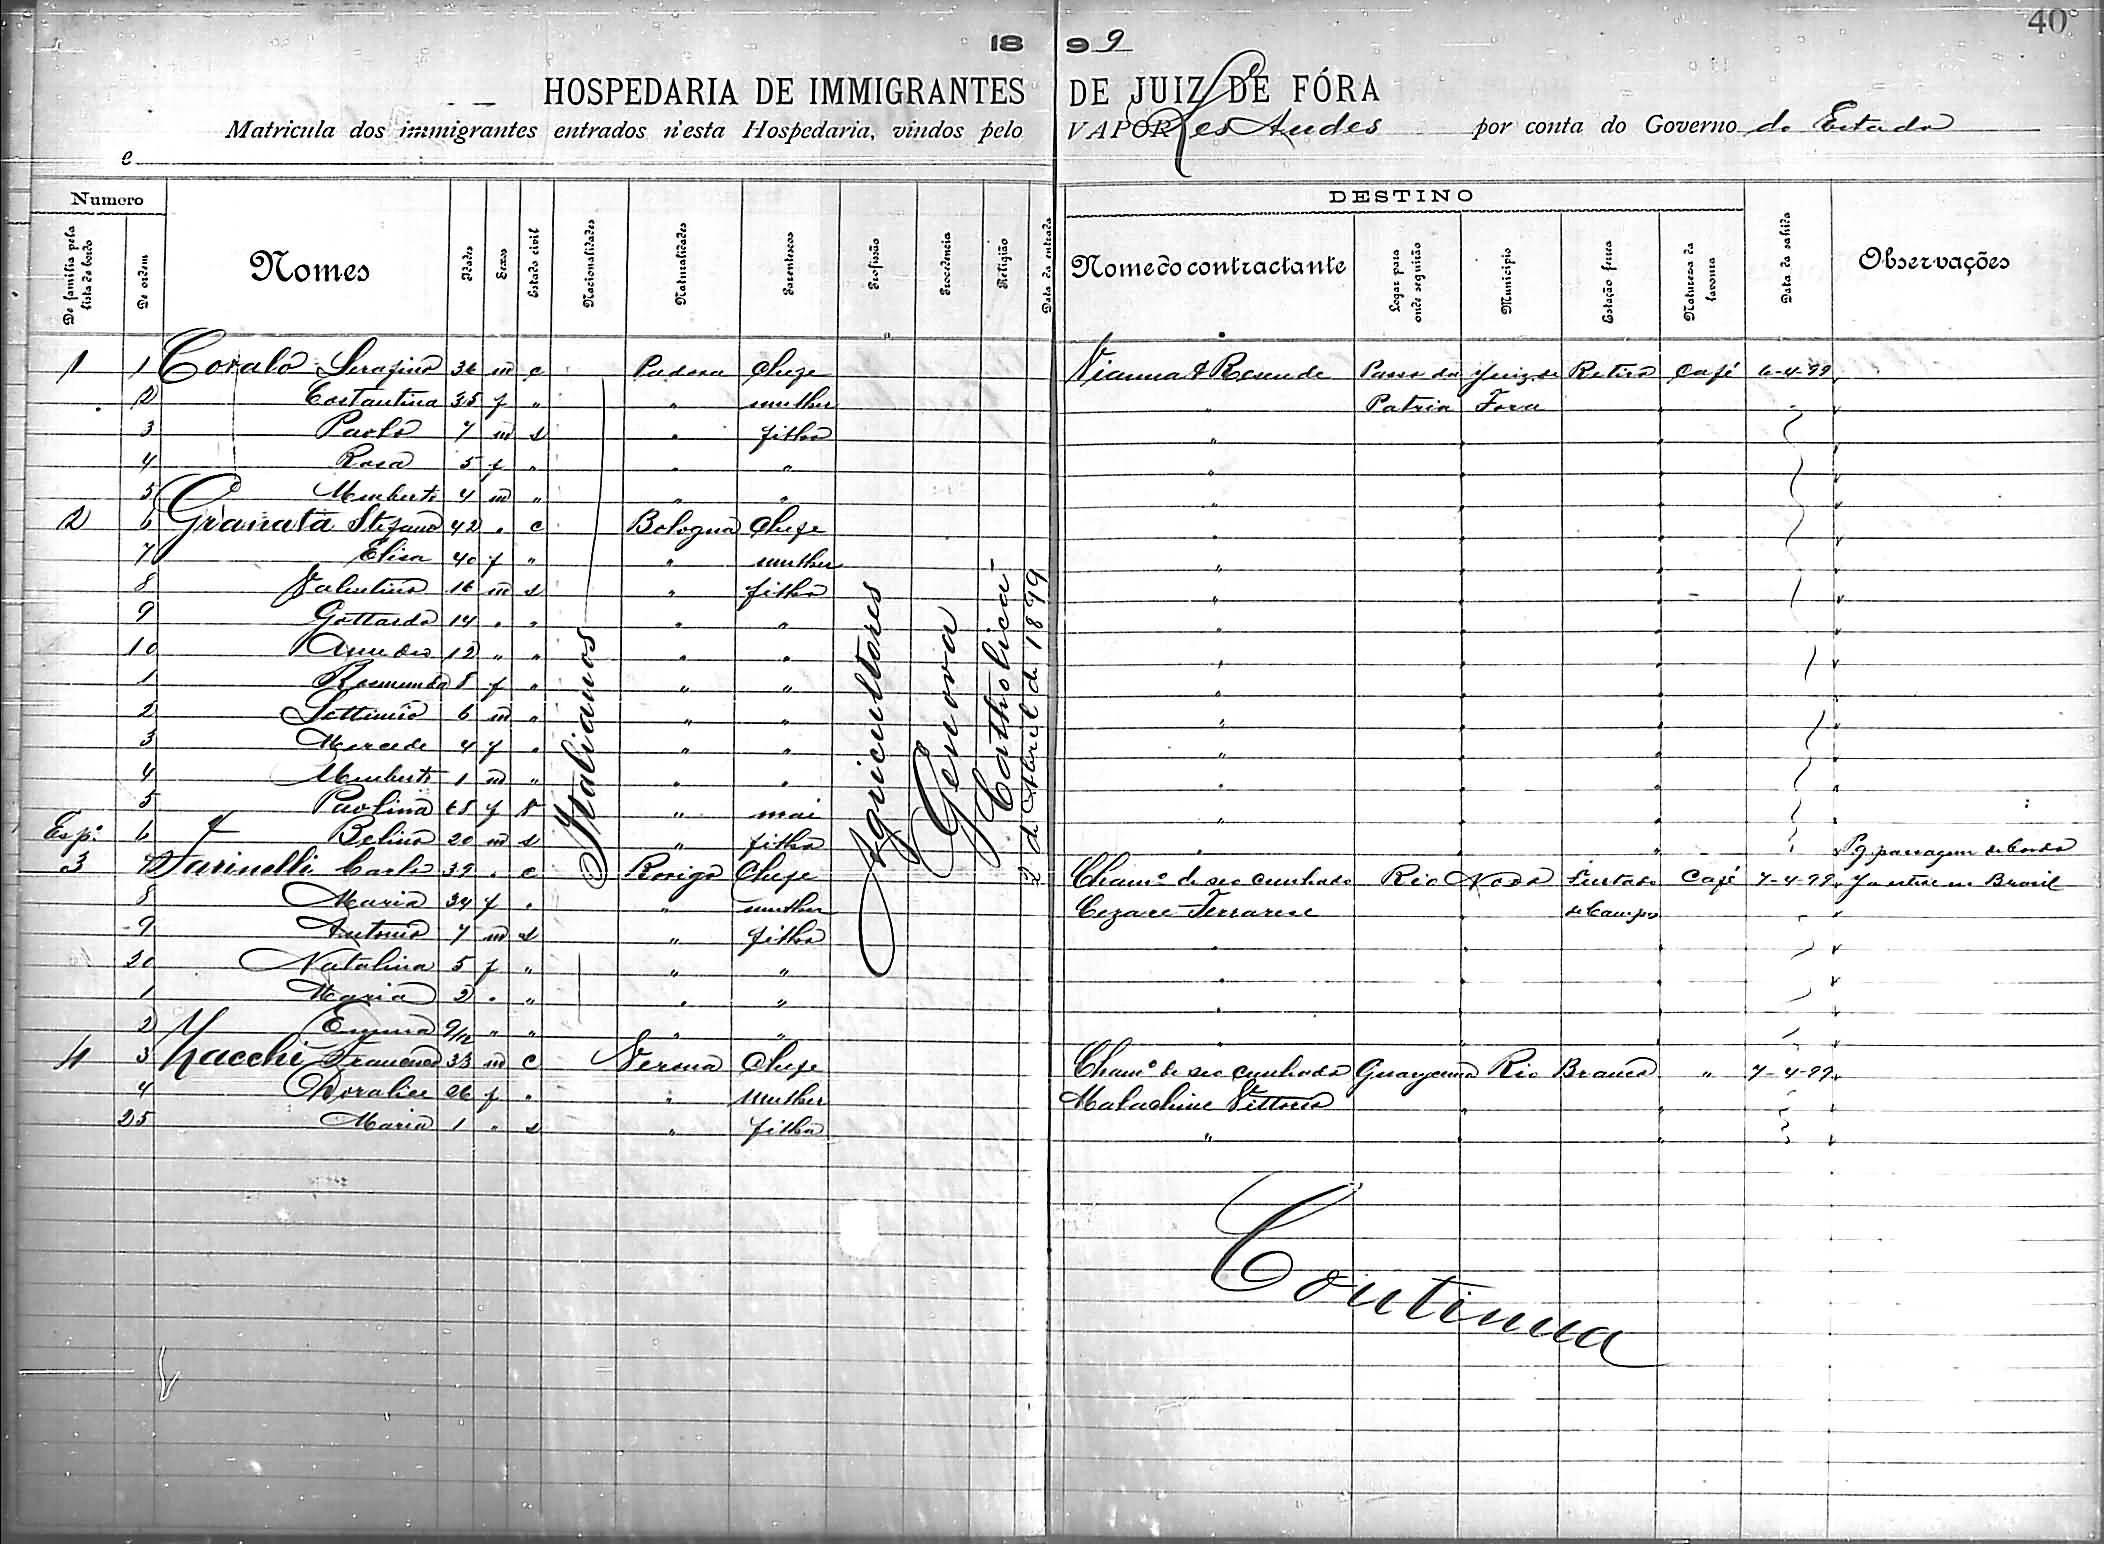 40
18 99
HOSPEDARIA DE IMMIGRANTES DE JUIZ DE FÓRA
Matricula dos immigrantes entrados n'esta Hospedaria, vindos pelo VAPOR Les Andes por conta do Governo do Estado
e
Numero DESTINO
De familia pela lista de bordo De ordem Nomes Idades Sexos Estado civil Nacionalidades Naturalidades Parentescos Profissão Procedencia Religião Data da entrada Nome do contractante Logar para onde seguirão Municipio Estação ferrea Natureza da lavoura Data da sahida Observações
1 1 Coralo Serafino 36 m c Padova Chefe Vianna & Resende Passo da Juiz de Retiro Café 6-4-99
2 Costantina 35 f " " mulher " Patria Fora
3 Paolo 7 m s " filho "
4 Rosa 5 f " " " "
5 Umberto 4 m " " "
2 6 Granata Stefano 42 " c Bologna Chefe "
7 Elisa 40 f " " mulher "
8 Valentino 16 m s " filho "
9 Gottardo 14 " " " " "
10 Amedeo 12 " " " " "
1 Rosmunda 8 f " " " "
2 Settimio 6 m " " " "
3 Mercede 4 f " " " "
4 Umberto 1 m " " " "
5 Paolina 65 f v " mãi "
Esp. 6 Belino 20 m s " filho " Pg passagem de bordo
3 7 Farinelli Carlo 39 " c Rovigo Chefe Cham.º de seo cunhado Rio Novo Furtado Café 7-4-99 Ja esteve no Brasil
8 Maria 34 f " " mulher Cezare Ferrarese de Campos
9 Antonio 7 m s " filho "
20 Natalina 5 f " " " "
1 Maria 2 " " " " "
2 Emma 9/12 " " " " "
4 3 Zacchi Francesco 33 m c Verona Chefe Cham.º de seo cunhado Rio Branco " 7-4-99
4 Doralice 26 f " " mulher Malachine Vittorio "
25 Maria 1 " s " filha " "
Italianos
Agricultores
Genova
Catholica
2 de Abril de 1899
Continua